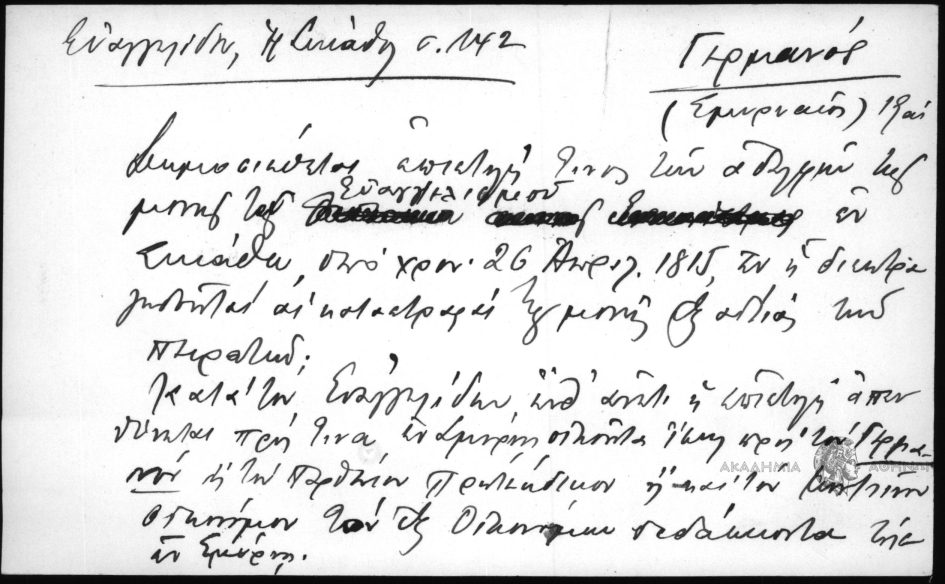 Εὐαγγελίδη, Ἡ Σκιάθος σ. 142
Γερμανός
(Σμυρναῖος) 18αι
Δημοσιεύεται ἐπιστολή τινος τῶν ἀδελφῶν τῆς
μονῆς τοῦ Εὐαγγελισμοῦ ἐν
Σκιάθῳ, ὑπό χρον. 26 Ἀπριλ. 1815, ἐν ᾗ διεκτρα
γωδοῦνται αἱ καταστροφαί τῆς μονῆς ἐξ αἰτίας τῶν
πειρατῶν;
Κατά τόν Εὐαγγελίδην, ἡ ἐπιστολή ἀπευ
θύνεται πρός τινα ἐν Σμύρνῃ οἰκοῦντα ἴσως πρός τόν Γερμα-
νόν ἤ τόν Παρθένιον Πρωτέκδικον ἤ καί τόν
Οἰκονόμον τόν ἐξ Οἰκονόμων τότε
ἐν Σμύρνῃ.
ΑΚΑΔΗΜΙΑ ΑΘΗΝΩΝ